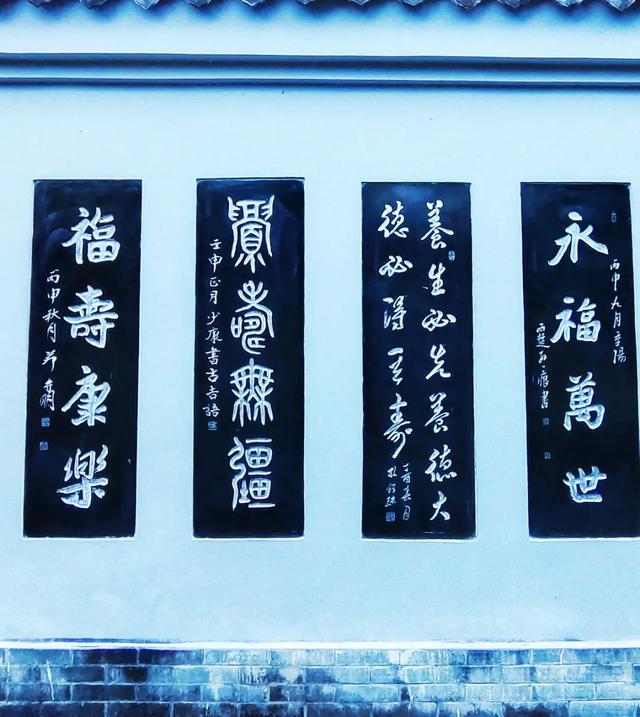 永福萬世
丙申九月重陽
養生必先養德大
德必得其壽
丁酉春月
眉壽無疆
壬申正月少康書古吉語
福壽康樂
丙申秋月